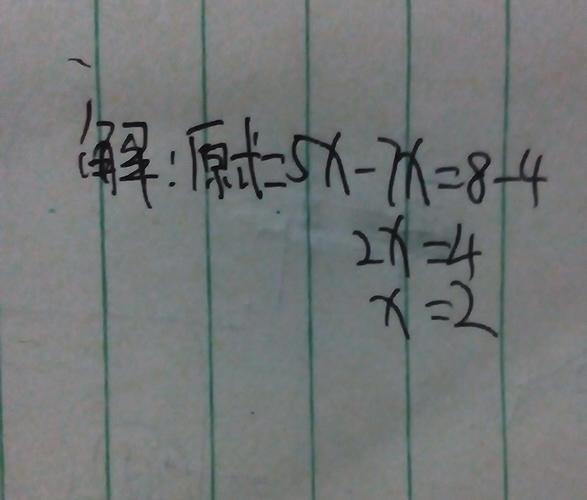 解:原式=5x-7x=8-4
2x=4
x=2